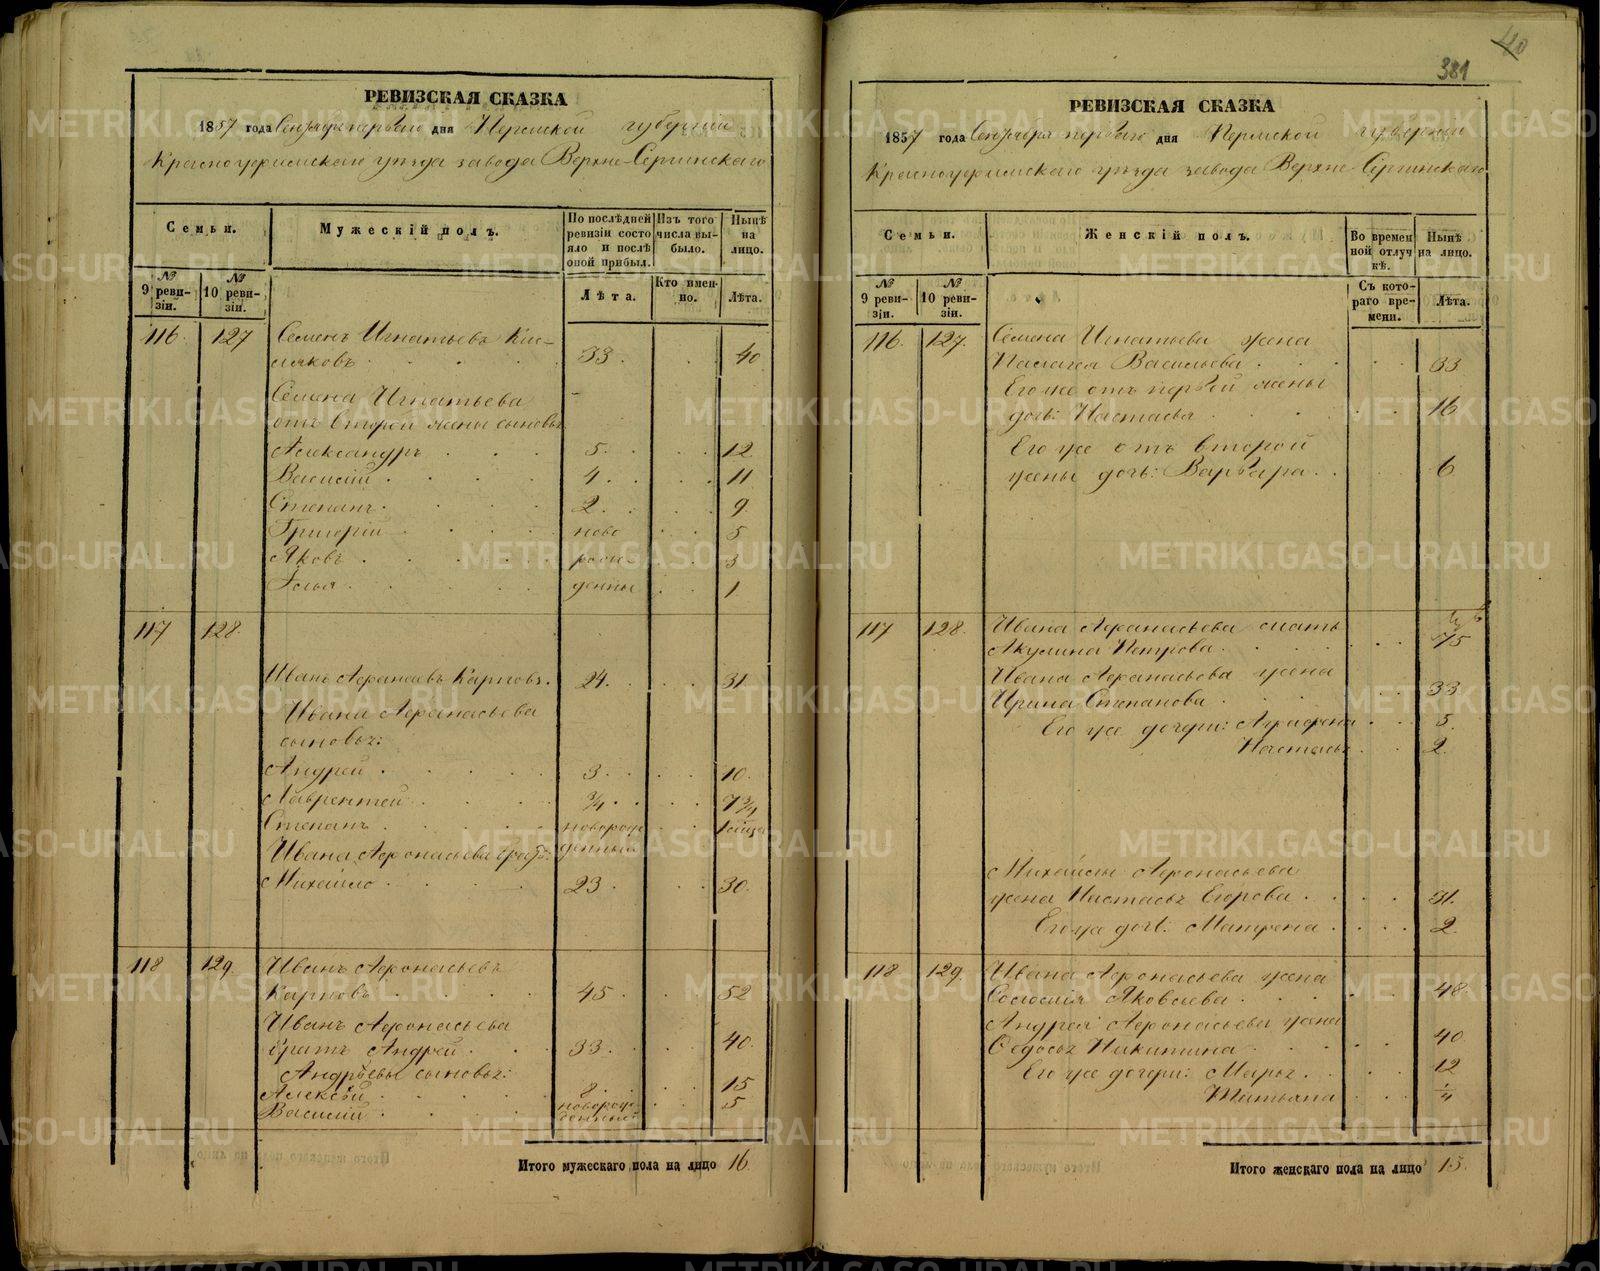 РЕВИЗСКАЯ СКАЗКА
1857 года Сентября первого дня Пермской губернии
Красноуфимского уѣзда завода Верхне-Сергинского
Семьи.
Мужескій полъ.
По послѣдней ревизіи состояло и послѣ оной прибыл.
Изъ того числа выбыло.
Нынѣ на лицо.
№ 9 ревизіи.
№ 10 ревизіи.
Лѣта.
Кто именно.
Лѣта.
116. 127 Семенъ Игнатьевъ Кис-
ляковъ 33. 40
Семена Игнатьева
отъ второй жены сыновья
Александръ 5. 12
Василій 4. 11
Степанъ 2. 9.
Григорій ново 5
Яковъ рож 3
Илья денны 1
117 128.
Иванъ Афанасьевъ Карповъ. 24. 31
Ивана Афанасьева
сыновья:
Андрей 3. 10.
Лаврентей ¾ 7 ¾
Степанъ новорож
Ивана Афонасьева братъ: денный
Михайло 23. 30.
118 129. Иванъ Афонасьевъ
Карповъ 45. 52
Иванъ Афонасьева
братъ Андрей 33. 40.
Андрѣевы сыновья:
Алексѣй 8. 15
Василій новорож денные 5
Итого мужескаго пола на лицо 16.
40
381
РЕВИЗСКАЯ СКАЗКА
1857 года Сентября первого дня Пермской губерніи
Красноуфимскаго уѣзда завода Верхне-Сергинскаго
Семьи.
Женскій полъ.
Во временной отлучкѣ.
Нынѣ на лицо.
№ 9 ревизіи.
№ 10 ревизіи.
Съ котораго времени.
Лѣта.
116. 127. Семена Игнатьева жена
Пелагея Васильева 33
Его же отъ первой жены
дочь: Настасья 16
Его же отъ второй
жены дочь: Варвара 6
117 128. Ивана Афанасьева мать
Акулина Петрова 75
Ивана Афанасьева жена
Ирина Степанова 33
Его же дочери: Аграфена 5.
Настасья 2.
Михайлы Афонасьева
жена Настасья Егорова 31.
Его же дочь: Матрена 2.
118 129. Ивана Афонасьева жена
Соломія Яковлева 48.
Андрея Афонасьева жена
Федосья Никитина 40
Его же дочери: Марья 12
Татьяна ¼
Итого женскаго пола на лицо 15.
METRIKI.GASO-URAL.RU